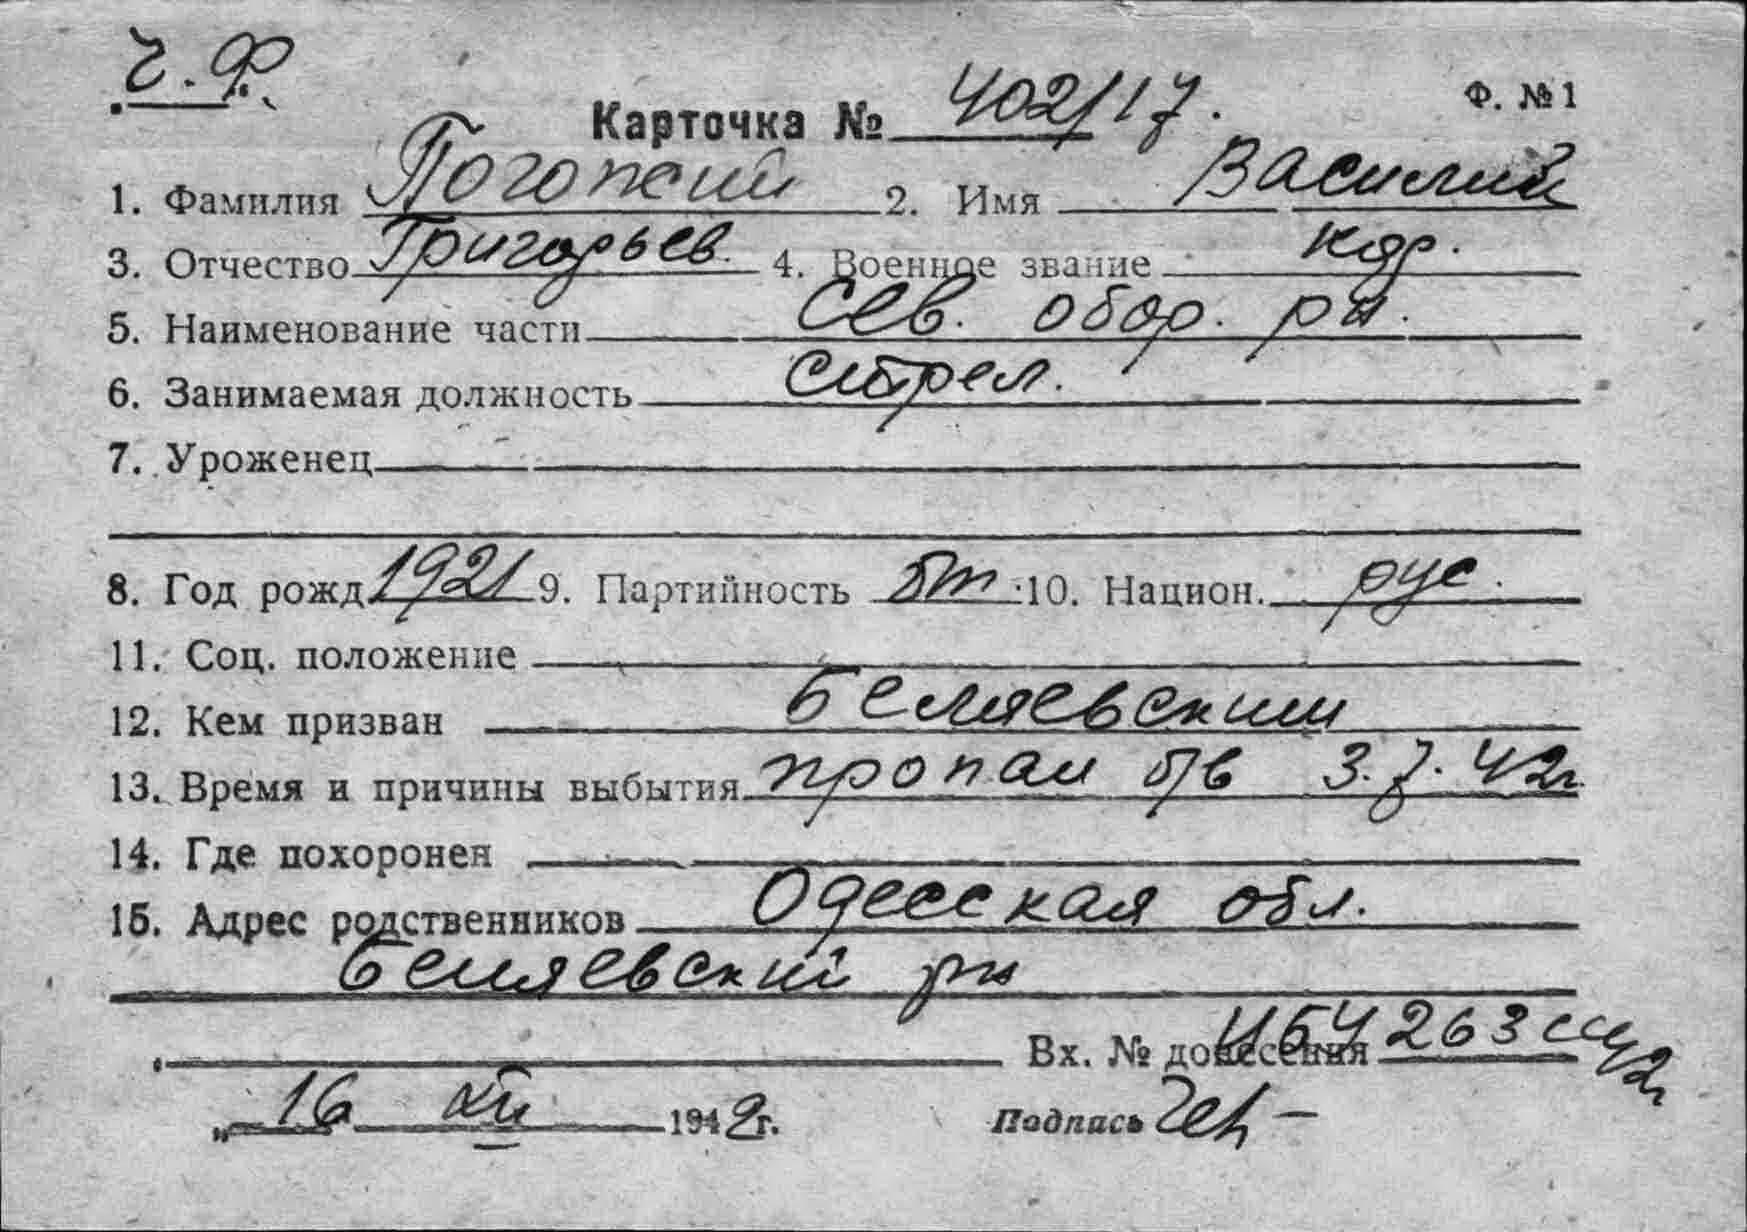 Ч. Ф.
Ф. № 1
Карточка № 402/17.
1. Фамилия 2. Имя Василий
3. Отчество Григорьев. 4. Военное звание кдр.
5. Наименование части Сев. обор. рн.
6. Занимаемая должность стрел.
7. Уроженец
8. Год рожд 1921 9. Партийность б/п 10. Национ. рус.
11. Соц. положение
12. Кем призван Беляевским
13. Время и причины выбытия пропал б/в 3.7.42г.
14. Где похоронен
15. Адрес родственников Одесская обл.
Беляевский рн
Вх. № донесения 263
„16 XII 1942г. Подпись